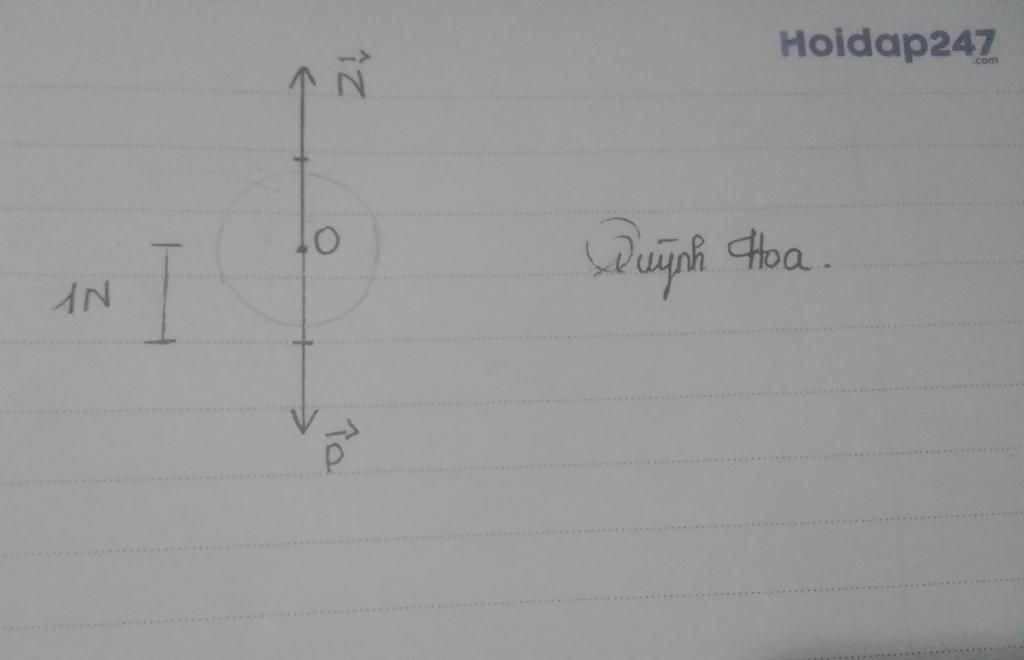 Hoidap247
.com
N
O
1N
Quỳnh Hoa.
P